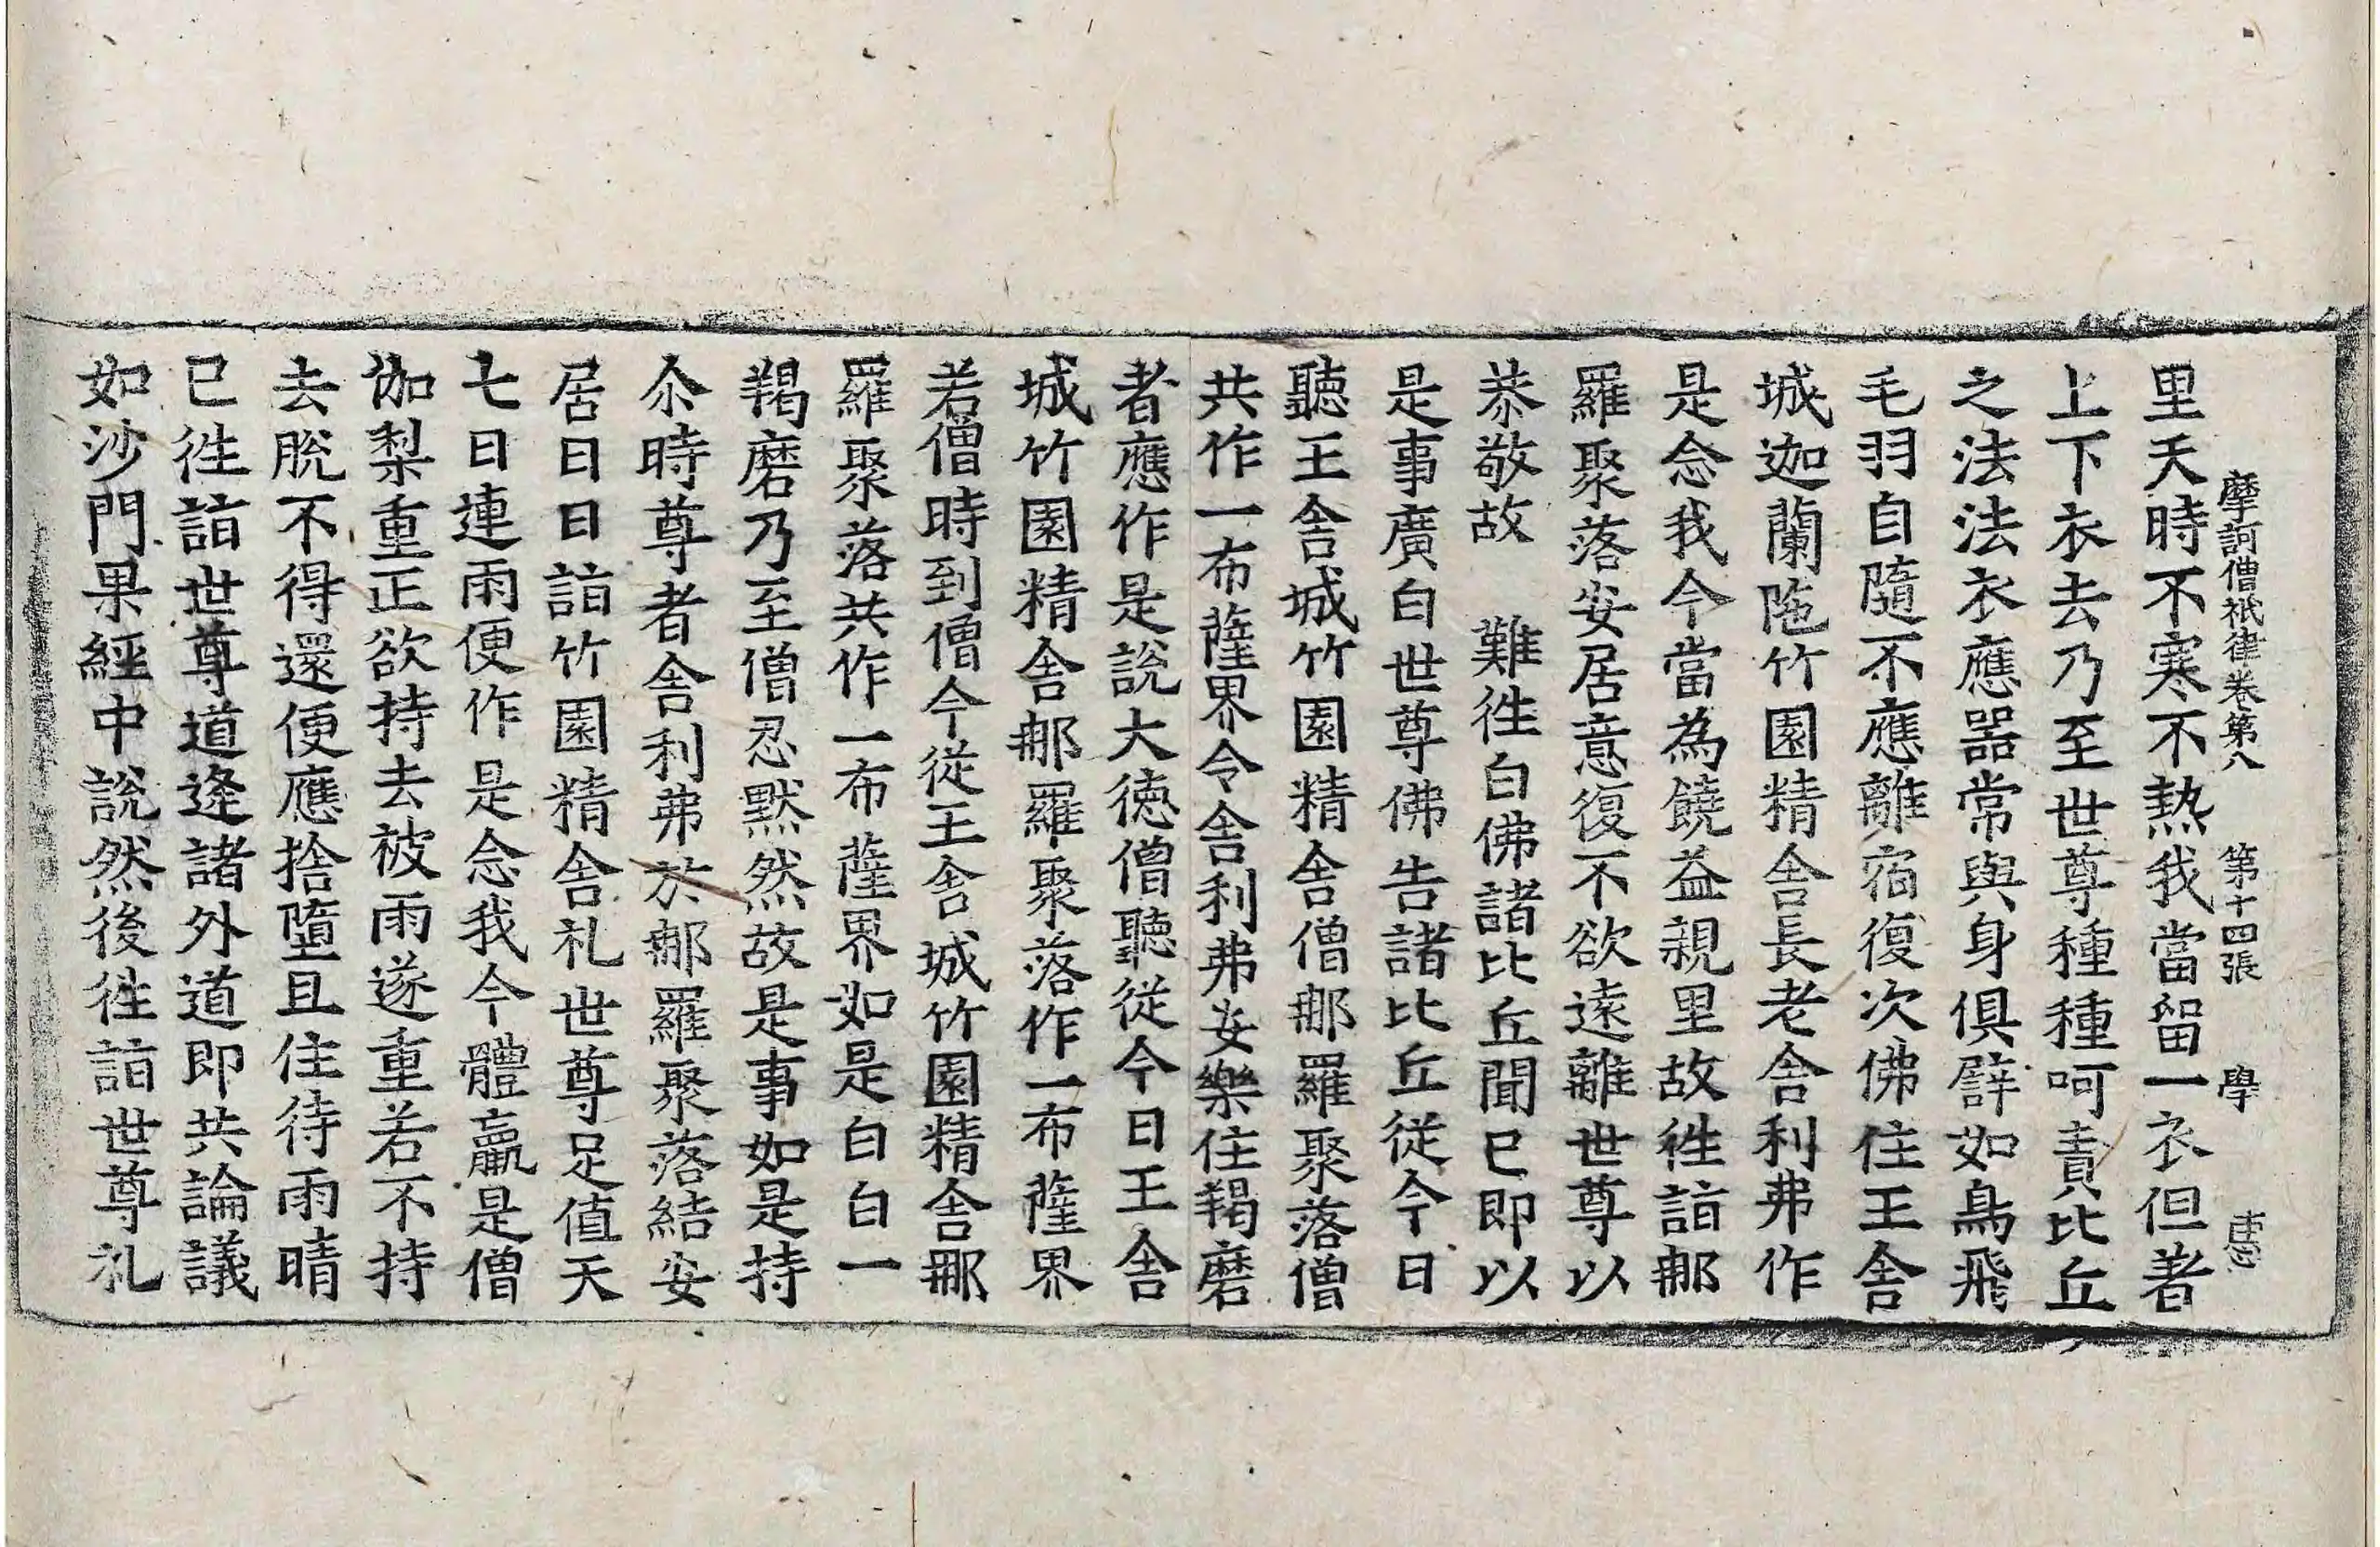 摩訶僧祇律卷第八 第十四張 學
里天時不寒不熱我當留一衣但著
上下衣去乃至世尊種種呵責比丘
之法法衣應器常與身俱譬如鳥飛
毛羽自隨不應離宿復次佛住王舍
城迦蘭陁竹園精舍長老舍利弗作
是念我今當為饒益親里故徃詣郍
羅聚落安居意復不欲遠離世尊以
恭敬故 難徃白佛諸比丘聞已即以
是事廣白世尊佛告諸比丘從今日
聽王舍城竹園精舍僧郍羅聚落僧
共作一布薩界令舍利弗安樂住羯磨
者應作是說大德僧聽從今日王舍
城竹園精舍郍羅聚落作一布薩界
若僧時到僧今從王舍城竹園精舍郍
羅聚落共作一布薩界如是白白一
羯磨乃至僧忍默然故是事如是持
尒時尊者舍利弗於郍羅聚落結安
居日日詣竹園精舍礼世尊足值天
七日連雨便作是念我今體羸是僧
伽梨重正欲持去被雨遂重若不持
去脫不得還便應捨墮且住待雨晴
已徃詣世尊道逢諸外道即共論議
如沙門果經中說然後徃詣世尊礼